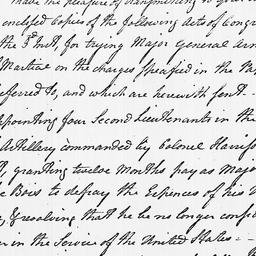 have the pleasure of transmitting to
enclosed Copies of the following Acts of Congr
the 3d Inst, for trying Major General Arn
Martial on the charges specified in the
referred to, and which are herewith sent. –
appointing four Second Lieutenants in the
Artillery commanded by Colonel Harris
granting twelve Months pay as Majo
de Bois to defray the Expences of his
& resolving that he be no longer consid
in the Service of the United States. –